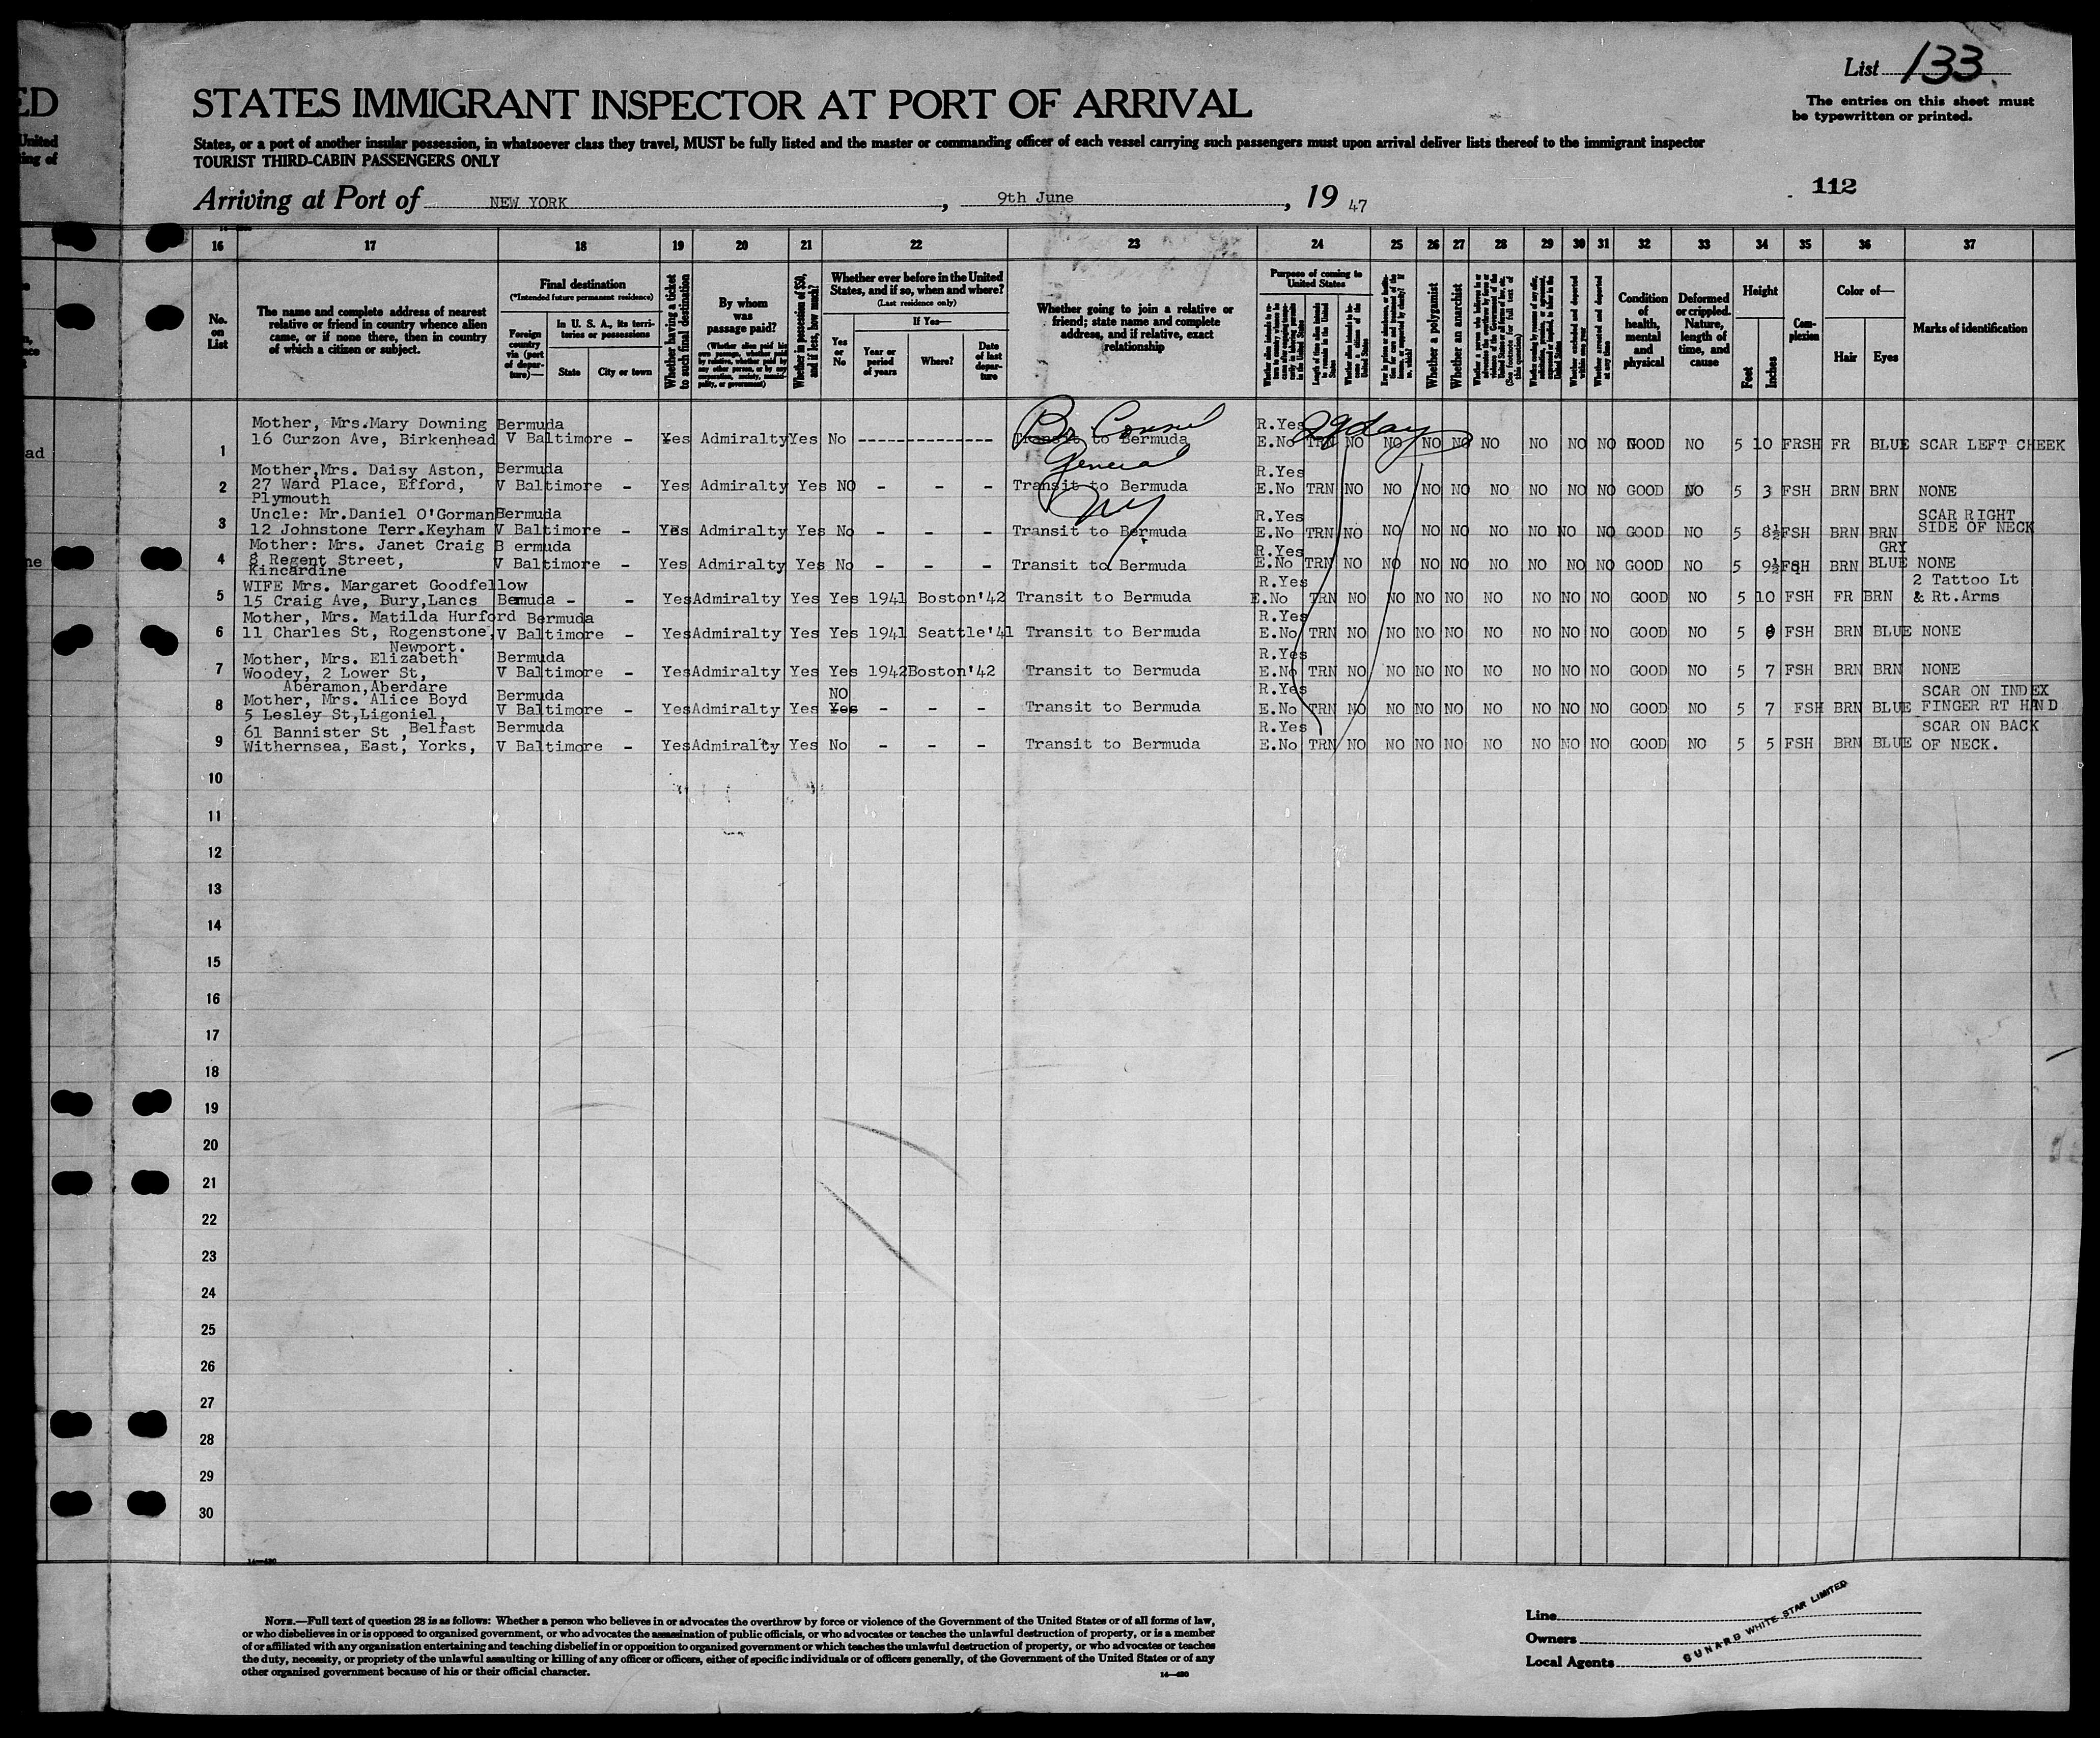 List 133
The entries on this sheet must
be typewritten or printed.
ED
STATES IMMIGRANT INSPECTOR AT PORT OF ARRIVAL
United
ing of
States, or a port of another insular possession, in whatsoever class they travel, MUST be fully listed and the master or commanding officer of each vessel carrying such passengers must upon arrival deliver lists thereof to the immigrant inspector
TOURIST THIRD-CABIN PASSENGERS ONLY
112
Arriving at Port of NEW YORK, 9th June, 19 47
16 17 18 19 20 21 22 23 24 25 26 27 28 29 30 31 32 33 34 35 36 37
No. on List
The name and complete address of nearest
relative or friend in country whence alien
came, or if none there, then in country
of which a citizen or subject.
Final destination
(*Intended future permanent residence)
Foreign country via (port of departure)—
In U. S. A., its territories or possessions
State
City or town
Whether having a ticket to such final destination
By whom was passage paid?
(Whether alien paid his own passage, whether paid by relative, whether paid by any other person, or by any corporation, society, municipality, or government)
Whether in possession of $50, and if less, how much?
Whether ever before in the United
States, and if so, when and where?
(Last residence only)
Yes or No
If Yes—
Year or period of years
Where?
Date of last departure
Whether going to join a relative or
friend; state name and complete
address, and if relative, exact
relationship
Purpose of coming to United States
Length of time alien intends to remain in the United States
Whether a polygamist
Whether an anarchist
Whether arrested and deported at any time
Condition of health, mental and physical
Deformed or crippled. Nature, length of time, and cause
Height
Feet
Inches
Complexion
Color of—
Hair
Eyes
Marks of identification
Br Consul
General
NY
29 day
1 Mother, Mrs.Mary Downing Bermuda R.Yes
16 Curzon Ave, Birkenhead V Baltimore - Yes Admiralty Yes No --------------- Transit to Bermuda E.No TRN NO NO NO NO NO NO NO NO GOOD NO 5 10 FRSH FR BLUE SCAR LEFT CHEEK
Mother,Mrs. Daisy Aston, Bermuda R.Yes
2 27 Ward Place, Efford, V Baltimore - Yes Admiralty Yes NO - - - Transit to Bermuda E.No TRN NO NO NO NO NO NO NO NO GOOD NO 5 3 FSH BRN BRN NONE
Plymouth
Uncle: Mr.Daniel O'Gorman Bermuda R.Yes SCAR RIGHT
3 12 Johnstone Terr.Keyham V Baltimore - Yes Admiralty Yes No - - - Transit to Bermuda E.No TRN NO NO NO NO NO NO NO NO GOOD NO 5 8½ FSH BRN BRN SIDE OF NECK
Mother: Mrs. Janet Craig B ermuda R.Yes GRY
4 8 Regent Street, V Baltimore - Yes Admiralty Yes No - - - Transit to Bermuda E.No TRN NO NO NO NO NO NO NO NO GOOD NO 5 9½ FSH BRN BLUE NONE
Kincardine
WIFE Mrs. Margaret Goodfellow R.Yes 2 Tattoo Lt
5 15 Craig Ave, Bury,Lancs Bemuda - - Yes Admiralty Yes Yes 1941 Boston'42 Transit to Bermuda E.No TRN NO NO NO NO NO NO NO NO GOOD NO 5 10 FSH FR BRN & Rt.Arms
Mother, Mrs. Matilda Hurford Bermuda R.Yes
6 11 Charles St, Rogenstone, V Baltimore - Yes Admiralty Yes Yes 1941 Seattle'41 Transit to Bermuda E.No TRN NO NO NO NO NO NO NO NO GOOD NO 5 FSH BRN BLUE NONE
Newport.
Mother, Mrs. Elizabeth Bermuda R.Yes
7 Woodey, 2 Lower St, V Baltimore - Yes Admiralty Yes Yes 1942 Boston'42 Transit to Bermuda E.No TRN NO NO NO NO NO NO NO NO GOOD NO 5 7 FSH BRN BRN NONE
Aberamon,Aberdare
Mother, Mrs. Alice Boyd Bermuda NO R.Yes SCAR ON INDEX
8 5 Lesley St,Ligoniel, V Baltimore - Yes Admiralty Yes Yes - - - Transit to Bermuda E.No TRN NO NO NO NO NO NO NO NO GOOD NO 5 7 FSH BRN BLUE FINGER RT HAND
Belfast
61 Bannister St , Bermuda R.Yes SCAR ON BACK
9 Withernsea, East, Yorks, V Baltimore - Yes Admiralty Yes No - - - Transit to Bermuda E.No TRN NO NO NO NO NO NO NO NO GOOD NO 5 5 FSH BRN BLUE OF NECK.
10
11
12
13
14
15
16
17
18
19
20
21
22
23
24
25
26
27
28
29
30
NOTE.—Full text of question 28 is as follows: Whether a person who believes in or advocates the overthrow by force or violence of the Government of the United States or of all forms of law,
or who disbelieves in or is opposed to organized government, or who advocates the assassination of public officials, or who advocates or teaches the unlawful destruction of property, or is a member
of or affiliated with any organization entertaining and teaching disbelief in or opposition to organized government or which teaches the unlawful destruction of property, or who advocates or teaches
the duty, necessity, or propriety of the unlawful assaulting or killing of any officer or officers, either of specific individuals or of officers generally, of the Government of the United States or of any
other organized government because of his or their official character.
14—430
Line
Owners
Local Agents
CUNARD WHITE STAR LIMITED